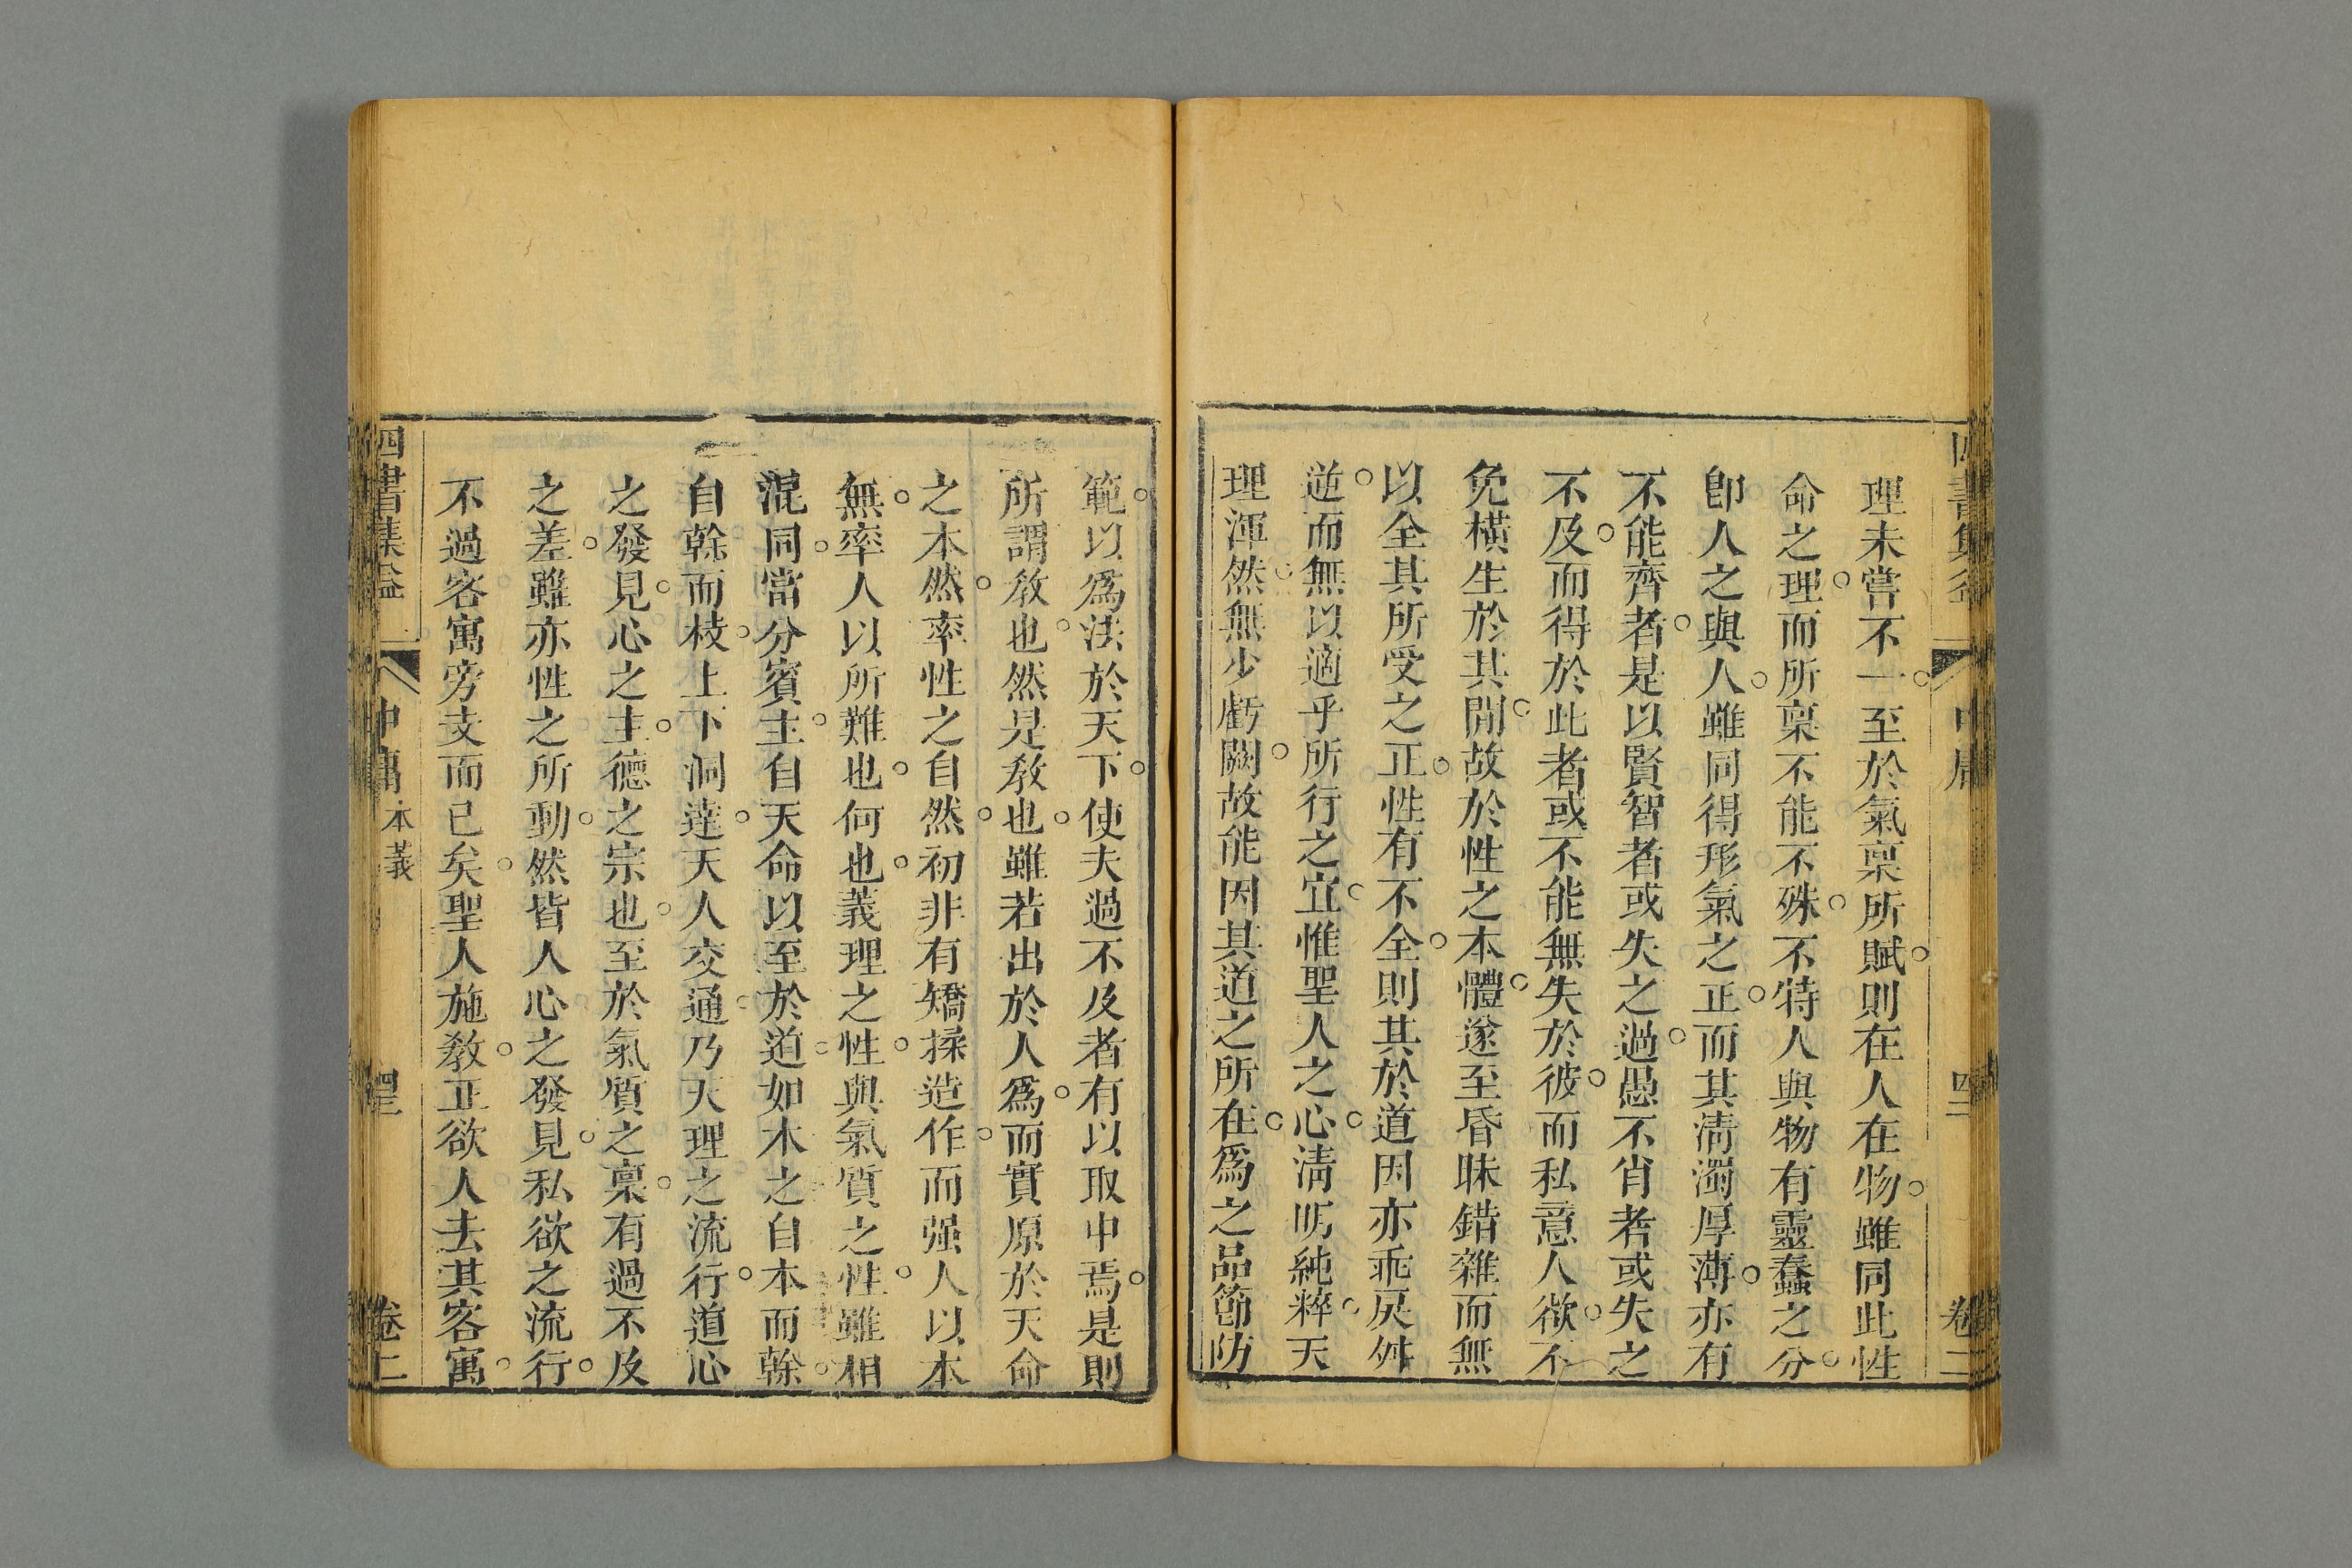 理未嘗不一。至於氣稟所賦。則在人在物。雖同此性
命之理。而所稟不能不殊。不特人與物有靈蠢之分。
卽人之與人。雖同得形氣之正。而其淸濁厚薄。亦有
不能齊者。是以賢智者或失之過。愚不肖者或失之
不及。而得於此者或不能無失於彼。而私意人欲。不
免橫生於其閒。故於性之本體。遂至昏昧錯雜而無
以全其所受之正。性有不全。則其於道因亦乖戾舛
逆。而無以適乎所行之宜。惟聖人之心。淸明純粹。天
理渾然。無少虧闕。故能因其道之所在。爲之品節防
四書集益
中庸
卷二
範。以爲法於天下。使夫過不及者有以取中焉。是則
所謂敎也。然是敎也。雖若出於人爲。而實原於天命
之本然。率性之自然。初非有矯揉造作。而强人以本
無。率人以所難也。何也。義理之性。與氣質之性。雖相
混同。當分賓主。自天命以至於道。如木之自本而榦。
自榦而枝。上下洞達。天人交通。乃天理之流行。道心
之發見。心之主。德之宗也。至於氣質之稟。有過不及
之差。雖亦性之所動。然皆人心之發見。私欲之流行。
不過客寓旁支而已矣。聖人施敎。正欲人去其客寓。
四書集益
中庸
本義
卷二